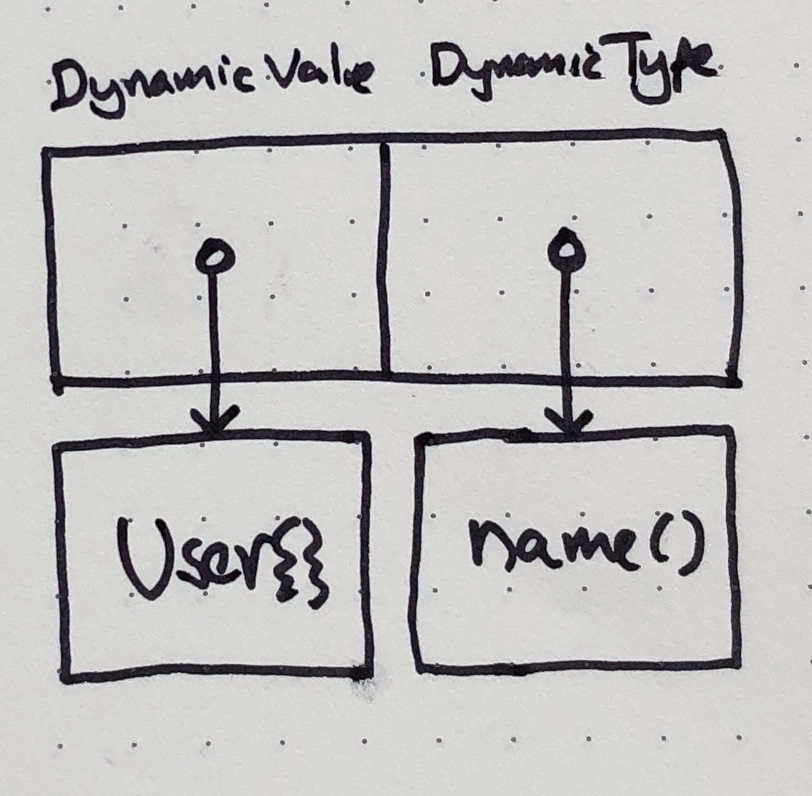 Dynamic Value Dynamic Type
User{} name()